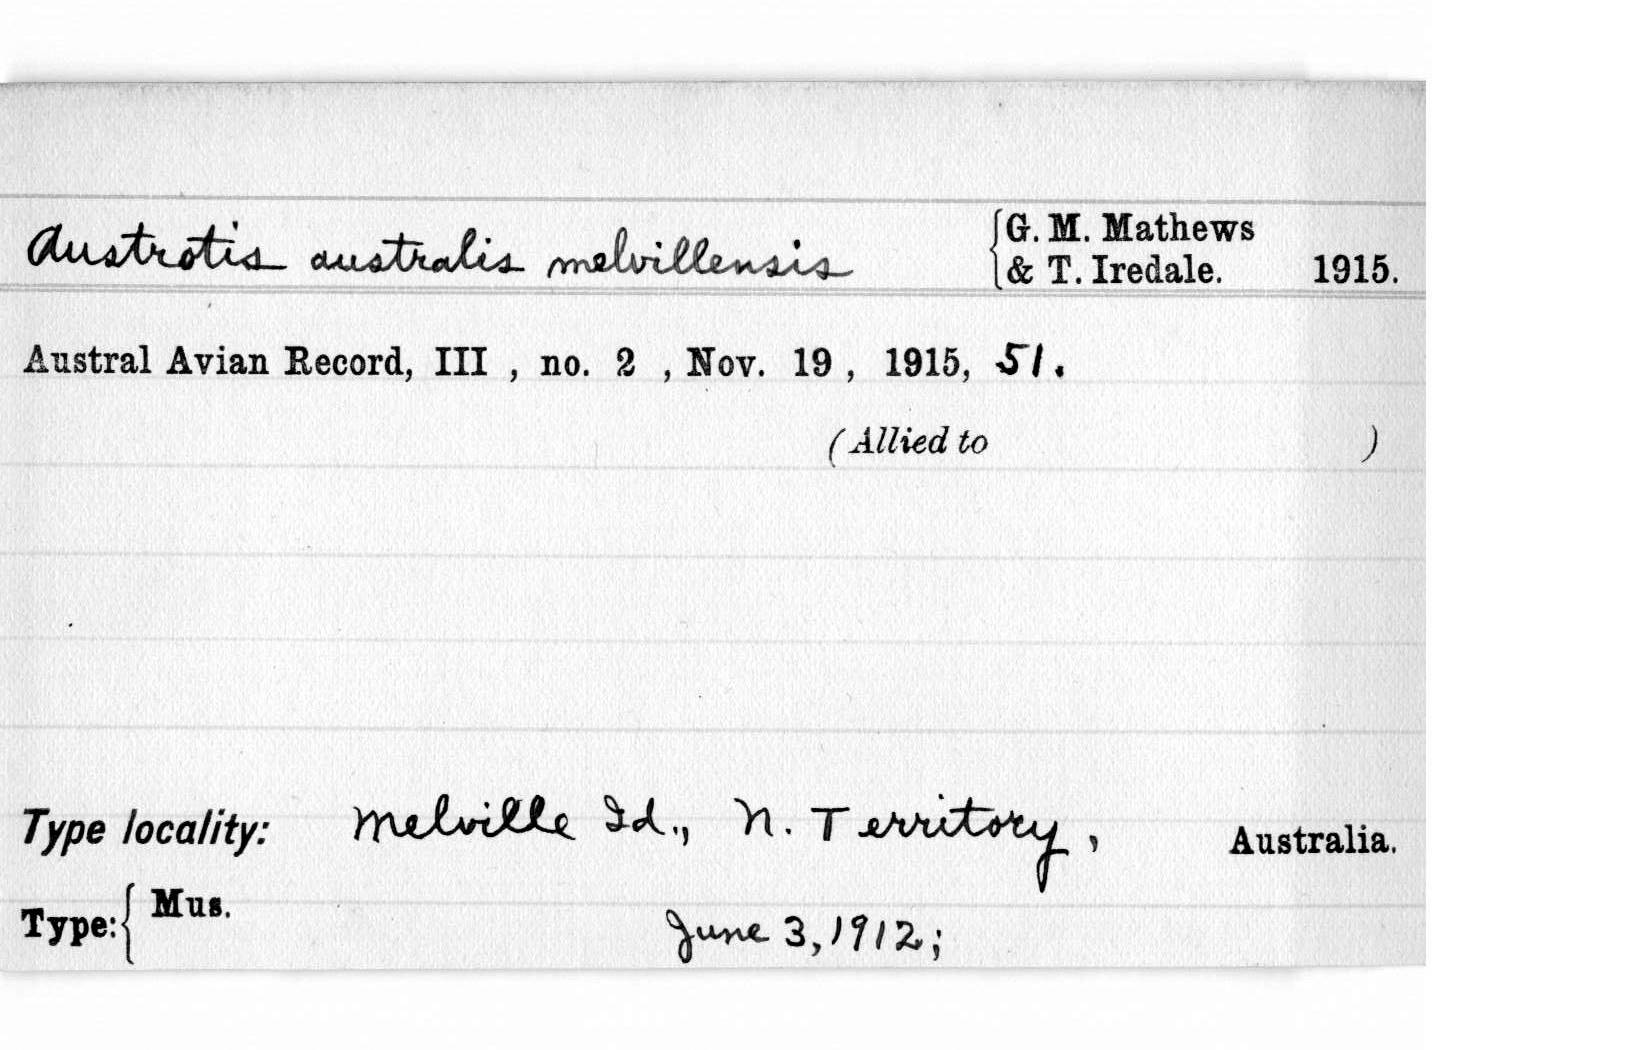 Austrotis australis melvillensis {G. M. Mathews
& T. Iredale. 1915.
Austral Avian Record, III , no. 2 , Nov. 19 , 1915, 51.
(Allied to )
Type locality: Melville Id., N. Territory, Australia.
Type: { Mus.
June 3, 1912;